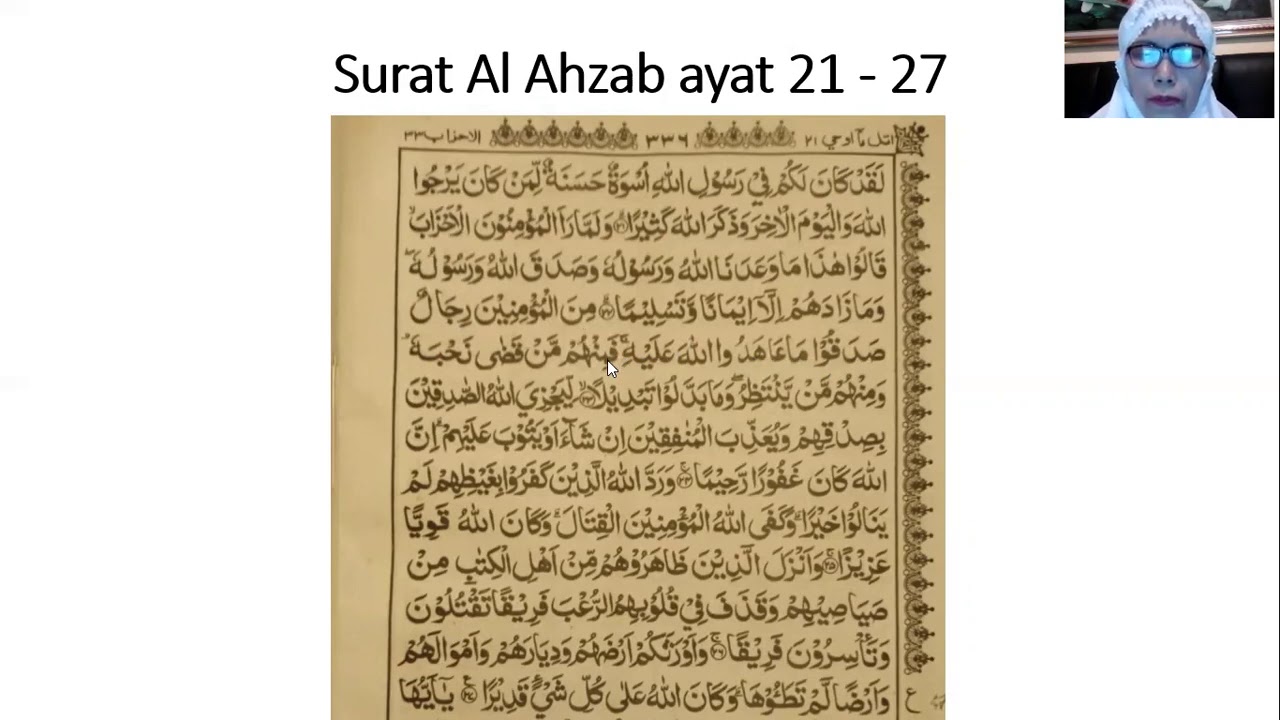 Surat Al Ahzab ayat 21 - 27
اتل ما اوحي ٢١ ٣٣٦ الاحزاب ٣٣
لَقَدْ كَانَ لَكُمْ فِيْ رَسُوْلِ اللهِ اُسْوَةٌ حَسَنَةٌ لِّمَنْ كَانَ يَرْجُوا
اللهَ وَالْيَوْمَ الْاٰخِرَ وَذَكَرَ اللهَ كَثِيْرًا ۝٢١ وَلَمَّا رَاَ الْمُؤْمِنُوْنَ الْاَحْزَابَ
قَالُوْا هٰذَا مَا وَعَدَنَا اللهُ وَرَسُوْلُهٗ وَصَدَقَ اللهُ وَرَسُوْلُهٗ
وَمَا زَادَهُمْ اِلَّآ اِيْمَانًا وَّتَسْلِيْمًا ۝٢٢ مِنَ الْمُؤْمِنِيْنَ رِجَالٌ
صَدَقُوْا مَا عَاهَدُوا اللهَ عَلَيْهِ ۚ فَمِنْهُمْ مَّنْ قَضٰى نَحْبَهٗ
وَمِنْهُمْ مَّنْ يَّنْتَظِرُ ۖ وَمَا بَدَّلُوْا تَبْدِيْلًا ۝٢٣ لِّيَجْزِيَ اللهُ الصّٰدِقِيْنَ
بِصِدْقِهِمْ وَيُعَذِّبَ الْمُنٰفِقِيْنَ اِنْ شَآءَ اَوْ يَتُوْبَ عَلَيْهِمْ ۗ اِنَّ
اللهَ كَانَ غَفُوْرًا رَّحِيْمًا ۝٢٤ وَرَدَّ اللهُ الَّذِيْنَ كَفَرُوْا بِغَيْظِهِمْ لَمْ
يَنَالُوْا خَيْرًا ۗ وَكَفَى اللهُ الْمُؤْمِنِيْنَ الْقِتَالَ ۗ وَكَانَ اللهُ قَوِيًّا
عَزِيْزًا ۝٢٥ وَاَنْزَلَ الَّذِيْنَ ظَاهَرُوْهُمْ مِّنْ اَهْلِ الْكِتٰبِ مِنْ
صَيَاصِيْهِمْ وَقَذَفَ فِيْ قُلُوْبِهِمُ الرُّعْبَ فَرِيْقًا تَقْتُلُوْنَ
وَتَأْسِرُوْنَ فَرِيْقًا ۝٢٦ وَاَوْرَثَكُمْ اَرْضَهُمْ وَدِيَارَهُمْ وَاَمْوَالَهُمْ
وَاَرْضًا لَّمْ تَطَئُوْهَا ۗ وَكَانَ اللهُ عَلٰى كُلِّ شَيْءٍ قَدِيْرًا ۝٢٧ يٰٓاَيُّهَا
ع